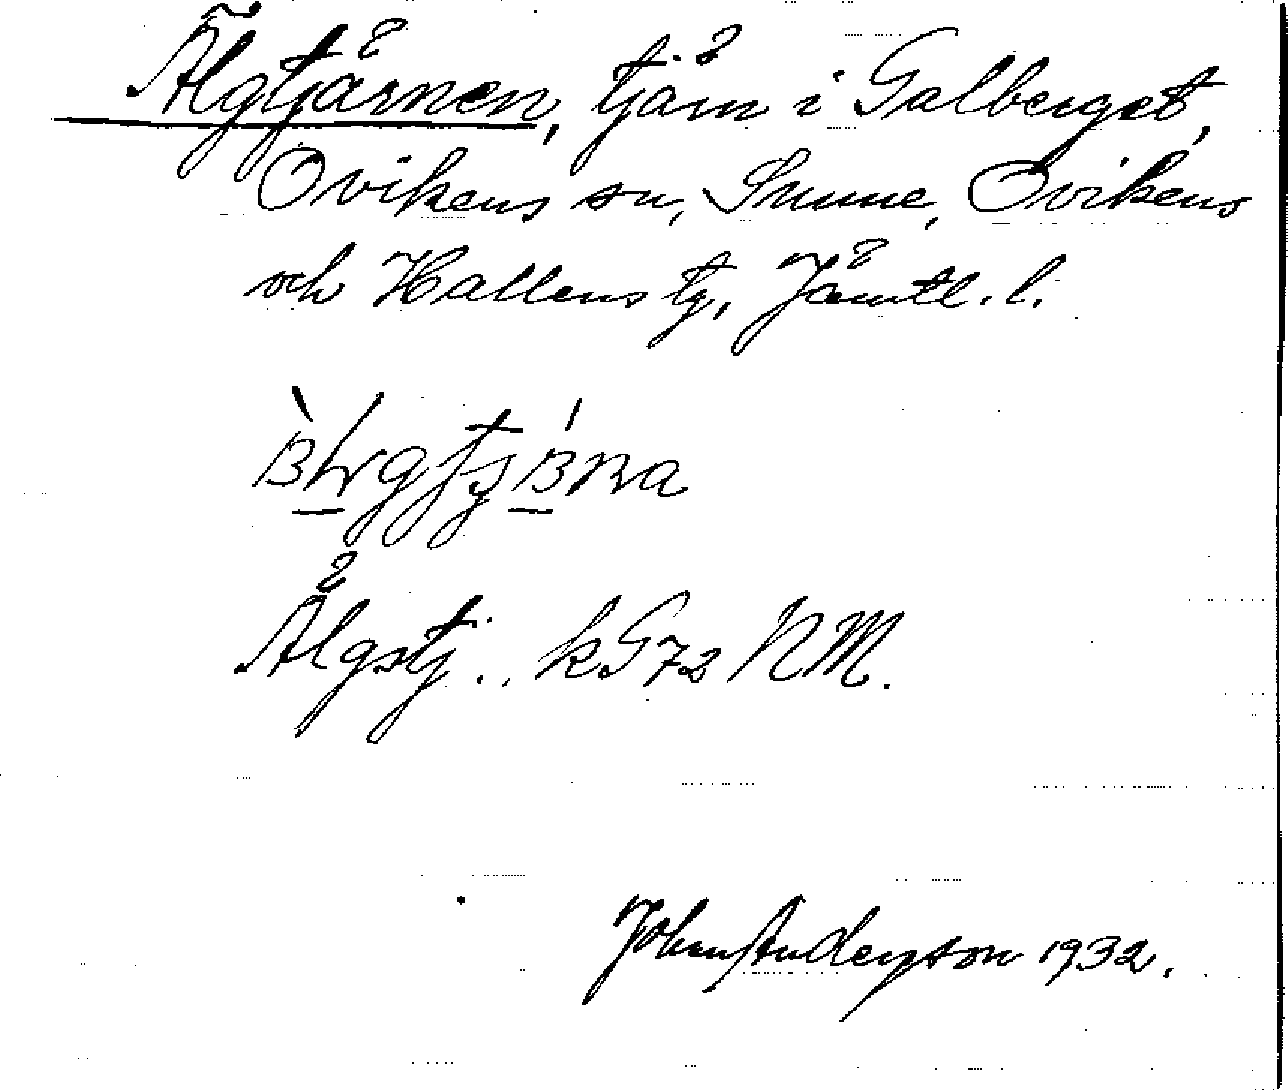 Älgtjärnen, tjärn i Galberget,
Ovikens sn, Sunne, Ovikens
och Hallens tg, Jämtl. l.
Älgstj.. kG72 NM.
John Anderson 1932.